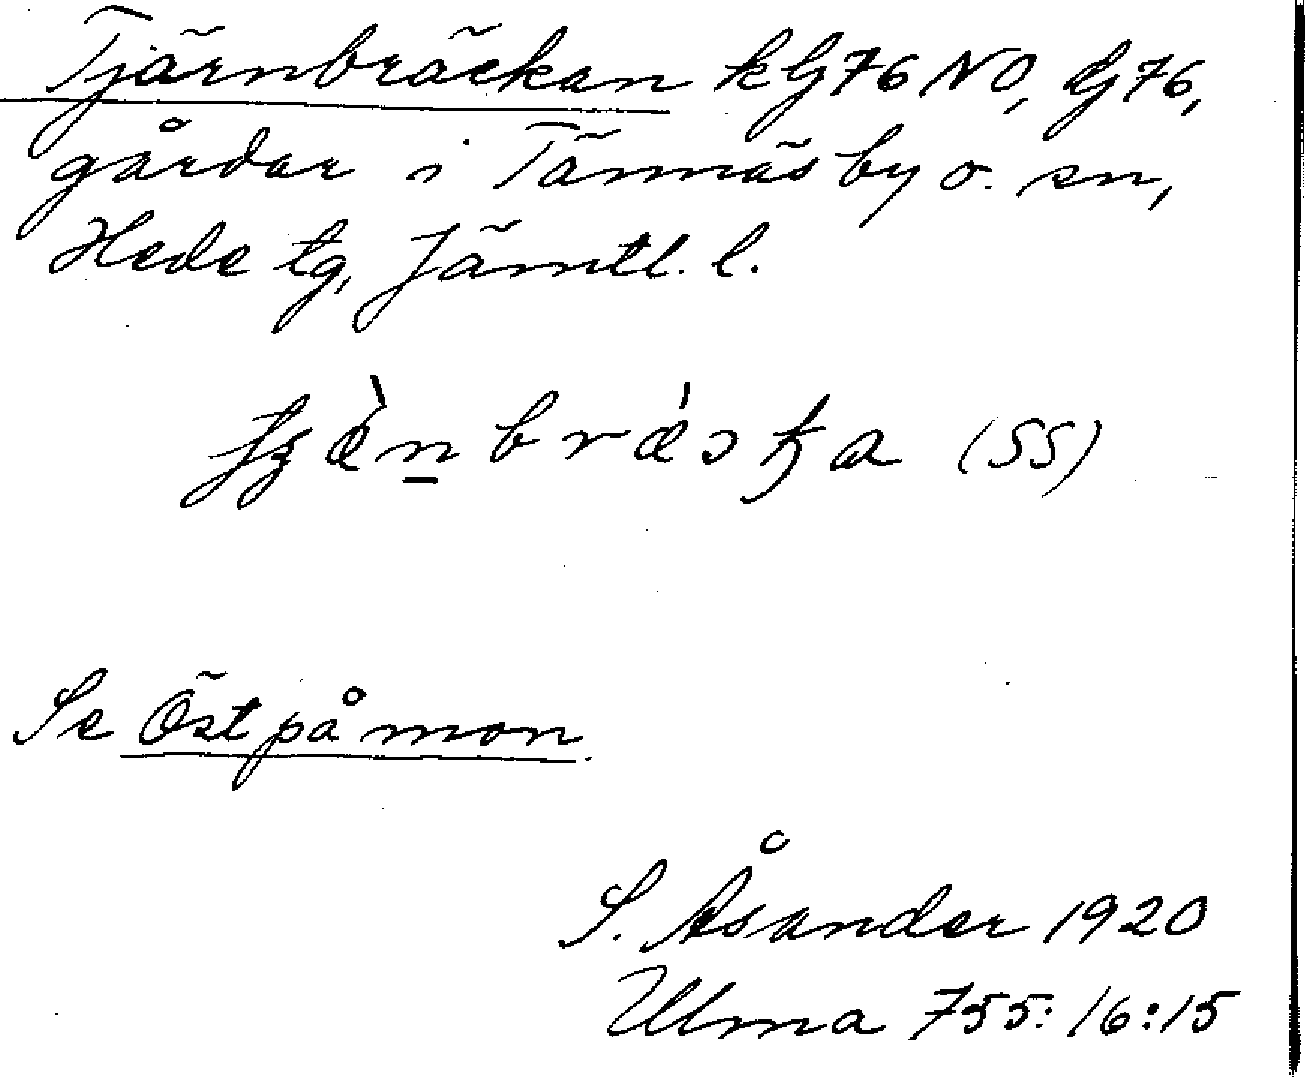 Tjärnbräckan kG76 NO, G76,
gårdar i Tännäs by o. sn,
Hede tg, Jämtl. l.
(SS)
Se Öst på mon.
S. Åsander 1920
Ulma 755: 16:15